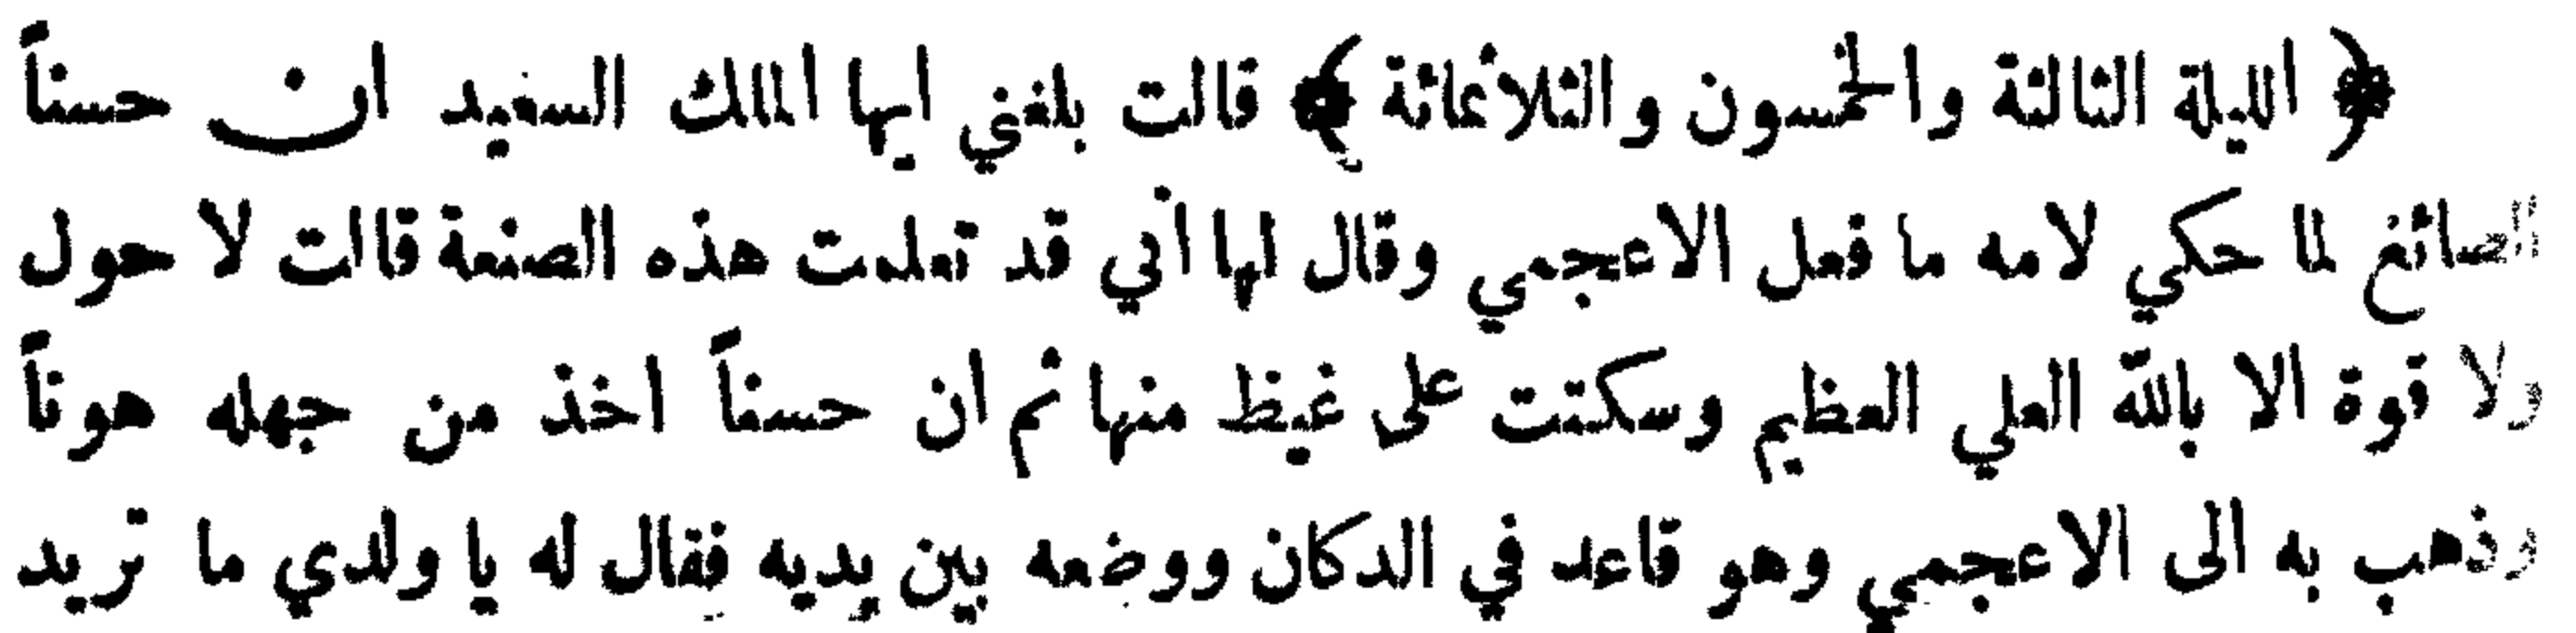 ﴿ الليلة الثالثة والخمسون والثلاثمائة ﴾ قالت بلغني ايها الملك السعيد ان حسناً
الصائغ لما حكي لامه ما فعل الاعجمي وقال لها اني قد تعلمت هذه الصنعة قالت لا حول
ولا قوة الا بالله العلي العظيم وسكتت على غيظ منها ثم ان حسناً اخذ من جهله هوناً
وذهب به الى الاعجمي وهو قاعد في الدكان ووضعه بين يديه فقال له يا ولدي ما تريد